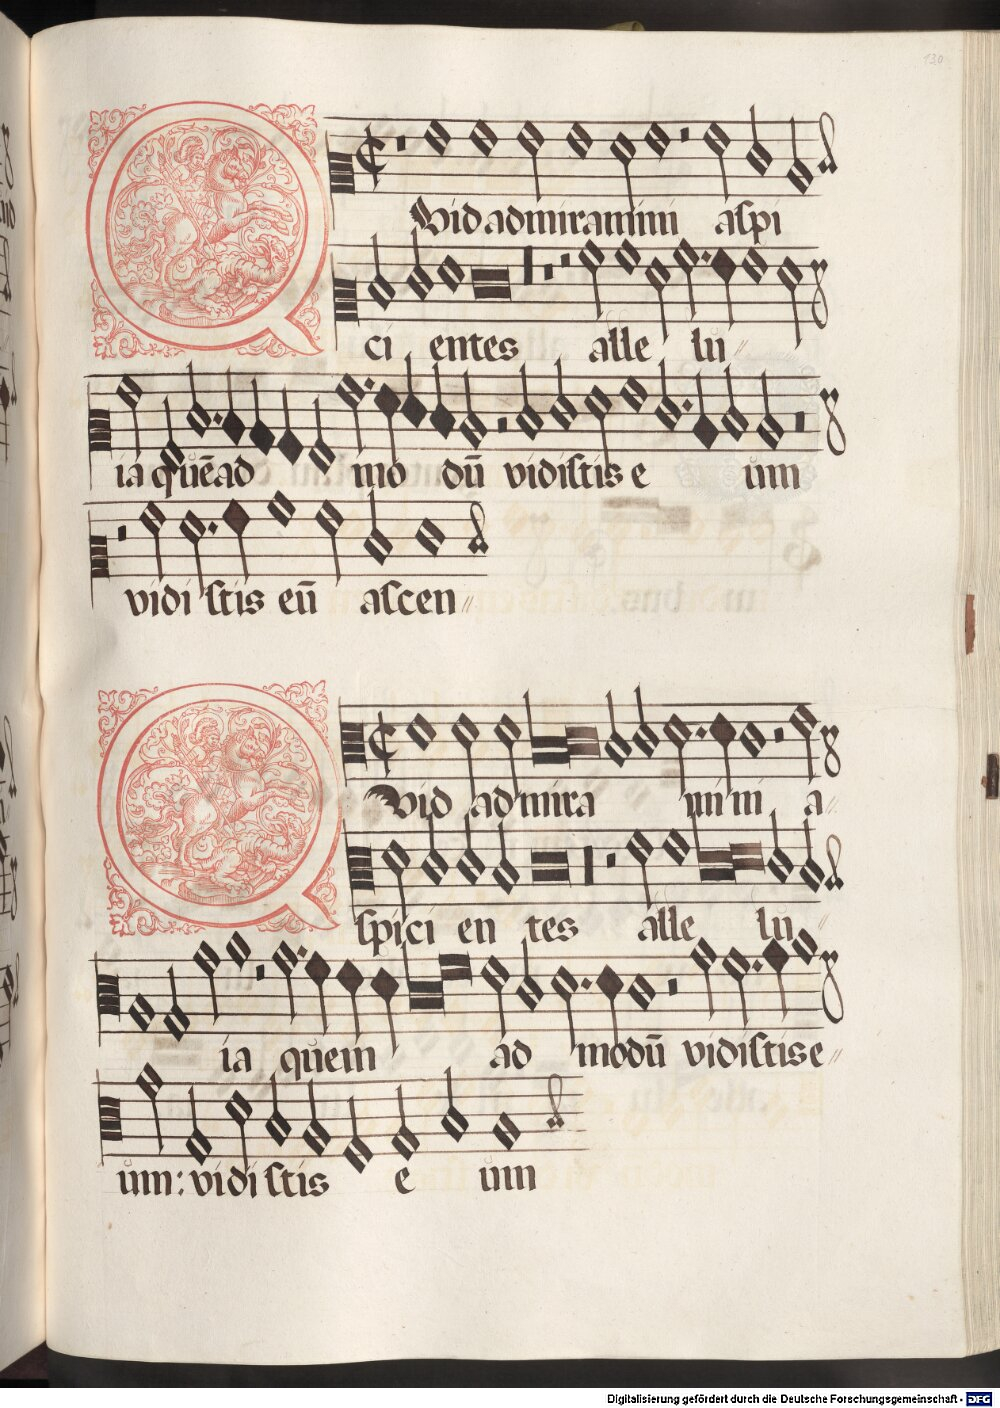 130
Quid admiramini aspi
ci entes alle lu //
ia quē ad mo dū vidistis e um
vidi stis eū ascen //
Quid ad mira mini a //
spici en tes alle lu //
ia quem ad modū vidistis e //
um: vidi stis e um
Digitalisierung gefördert durch die Deutsche Forschungsgemeinschaft - DFG